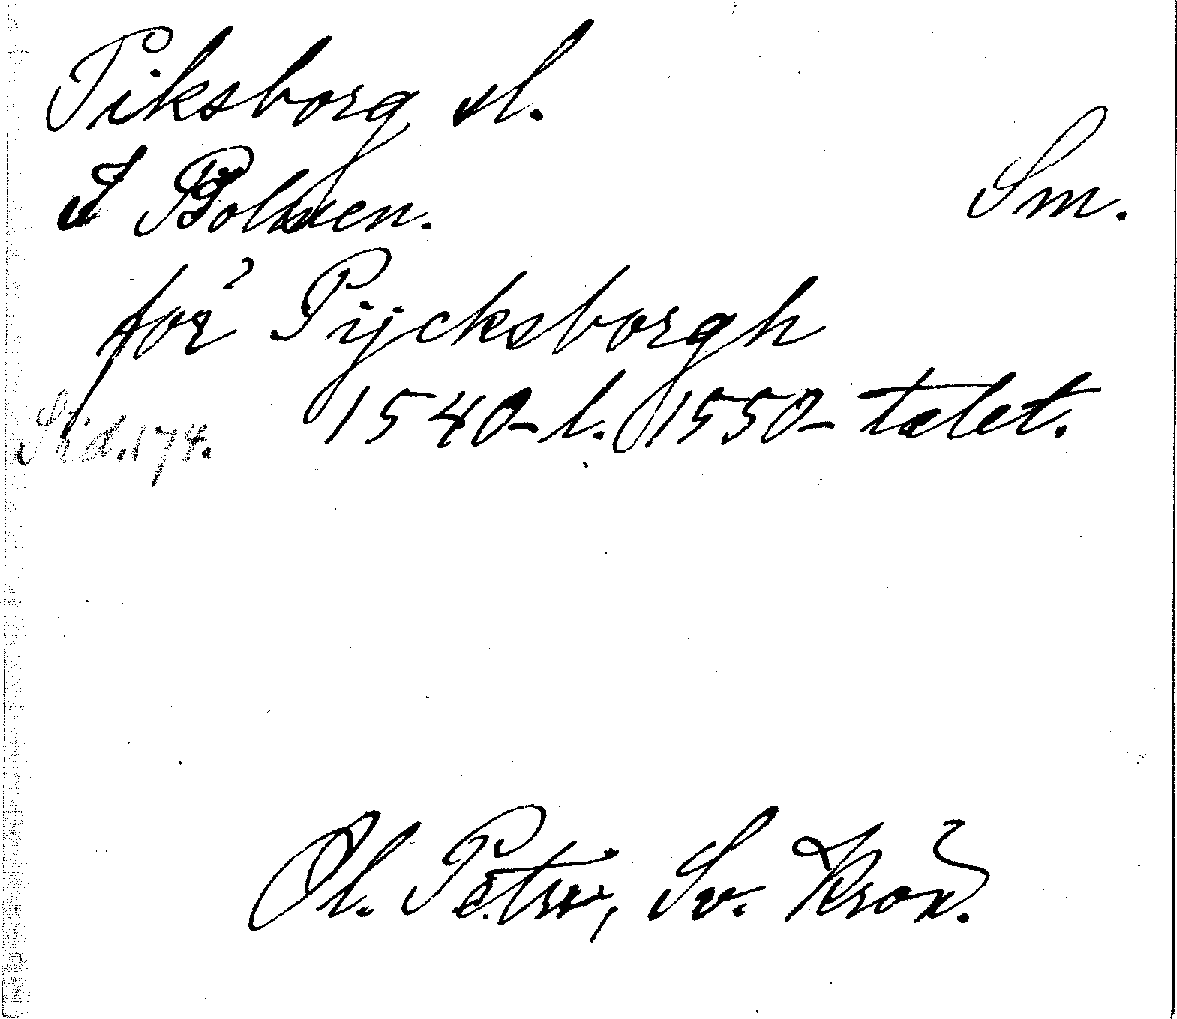 Piksborg sl.
I Bolmen. Sm.
for Pijcksborgh
Sid. 174. 1540- l. 1550-talet.
Ol. Petri, Sv. Krön.